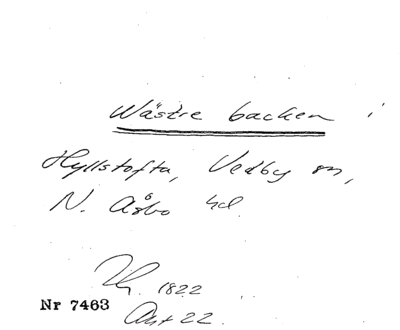 Wästre backen i
Hyllstofta, Vedby sn,
N. Åsbo hd
1822
Nr 7463
Akt 22.